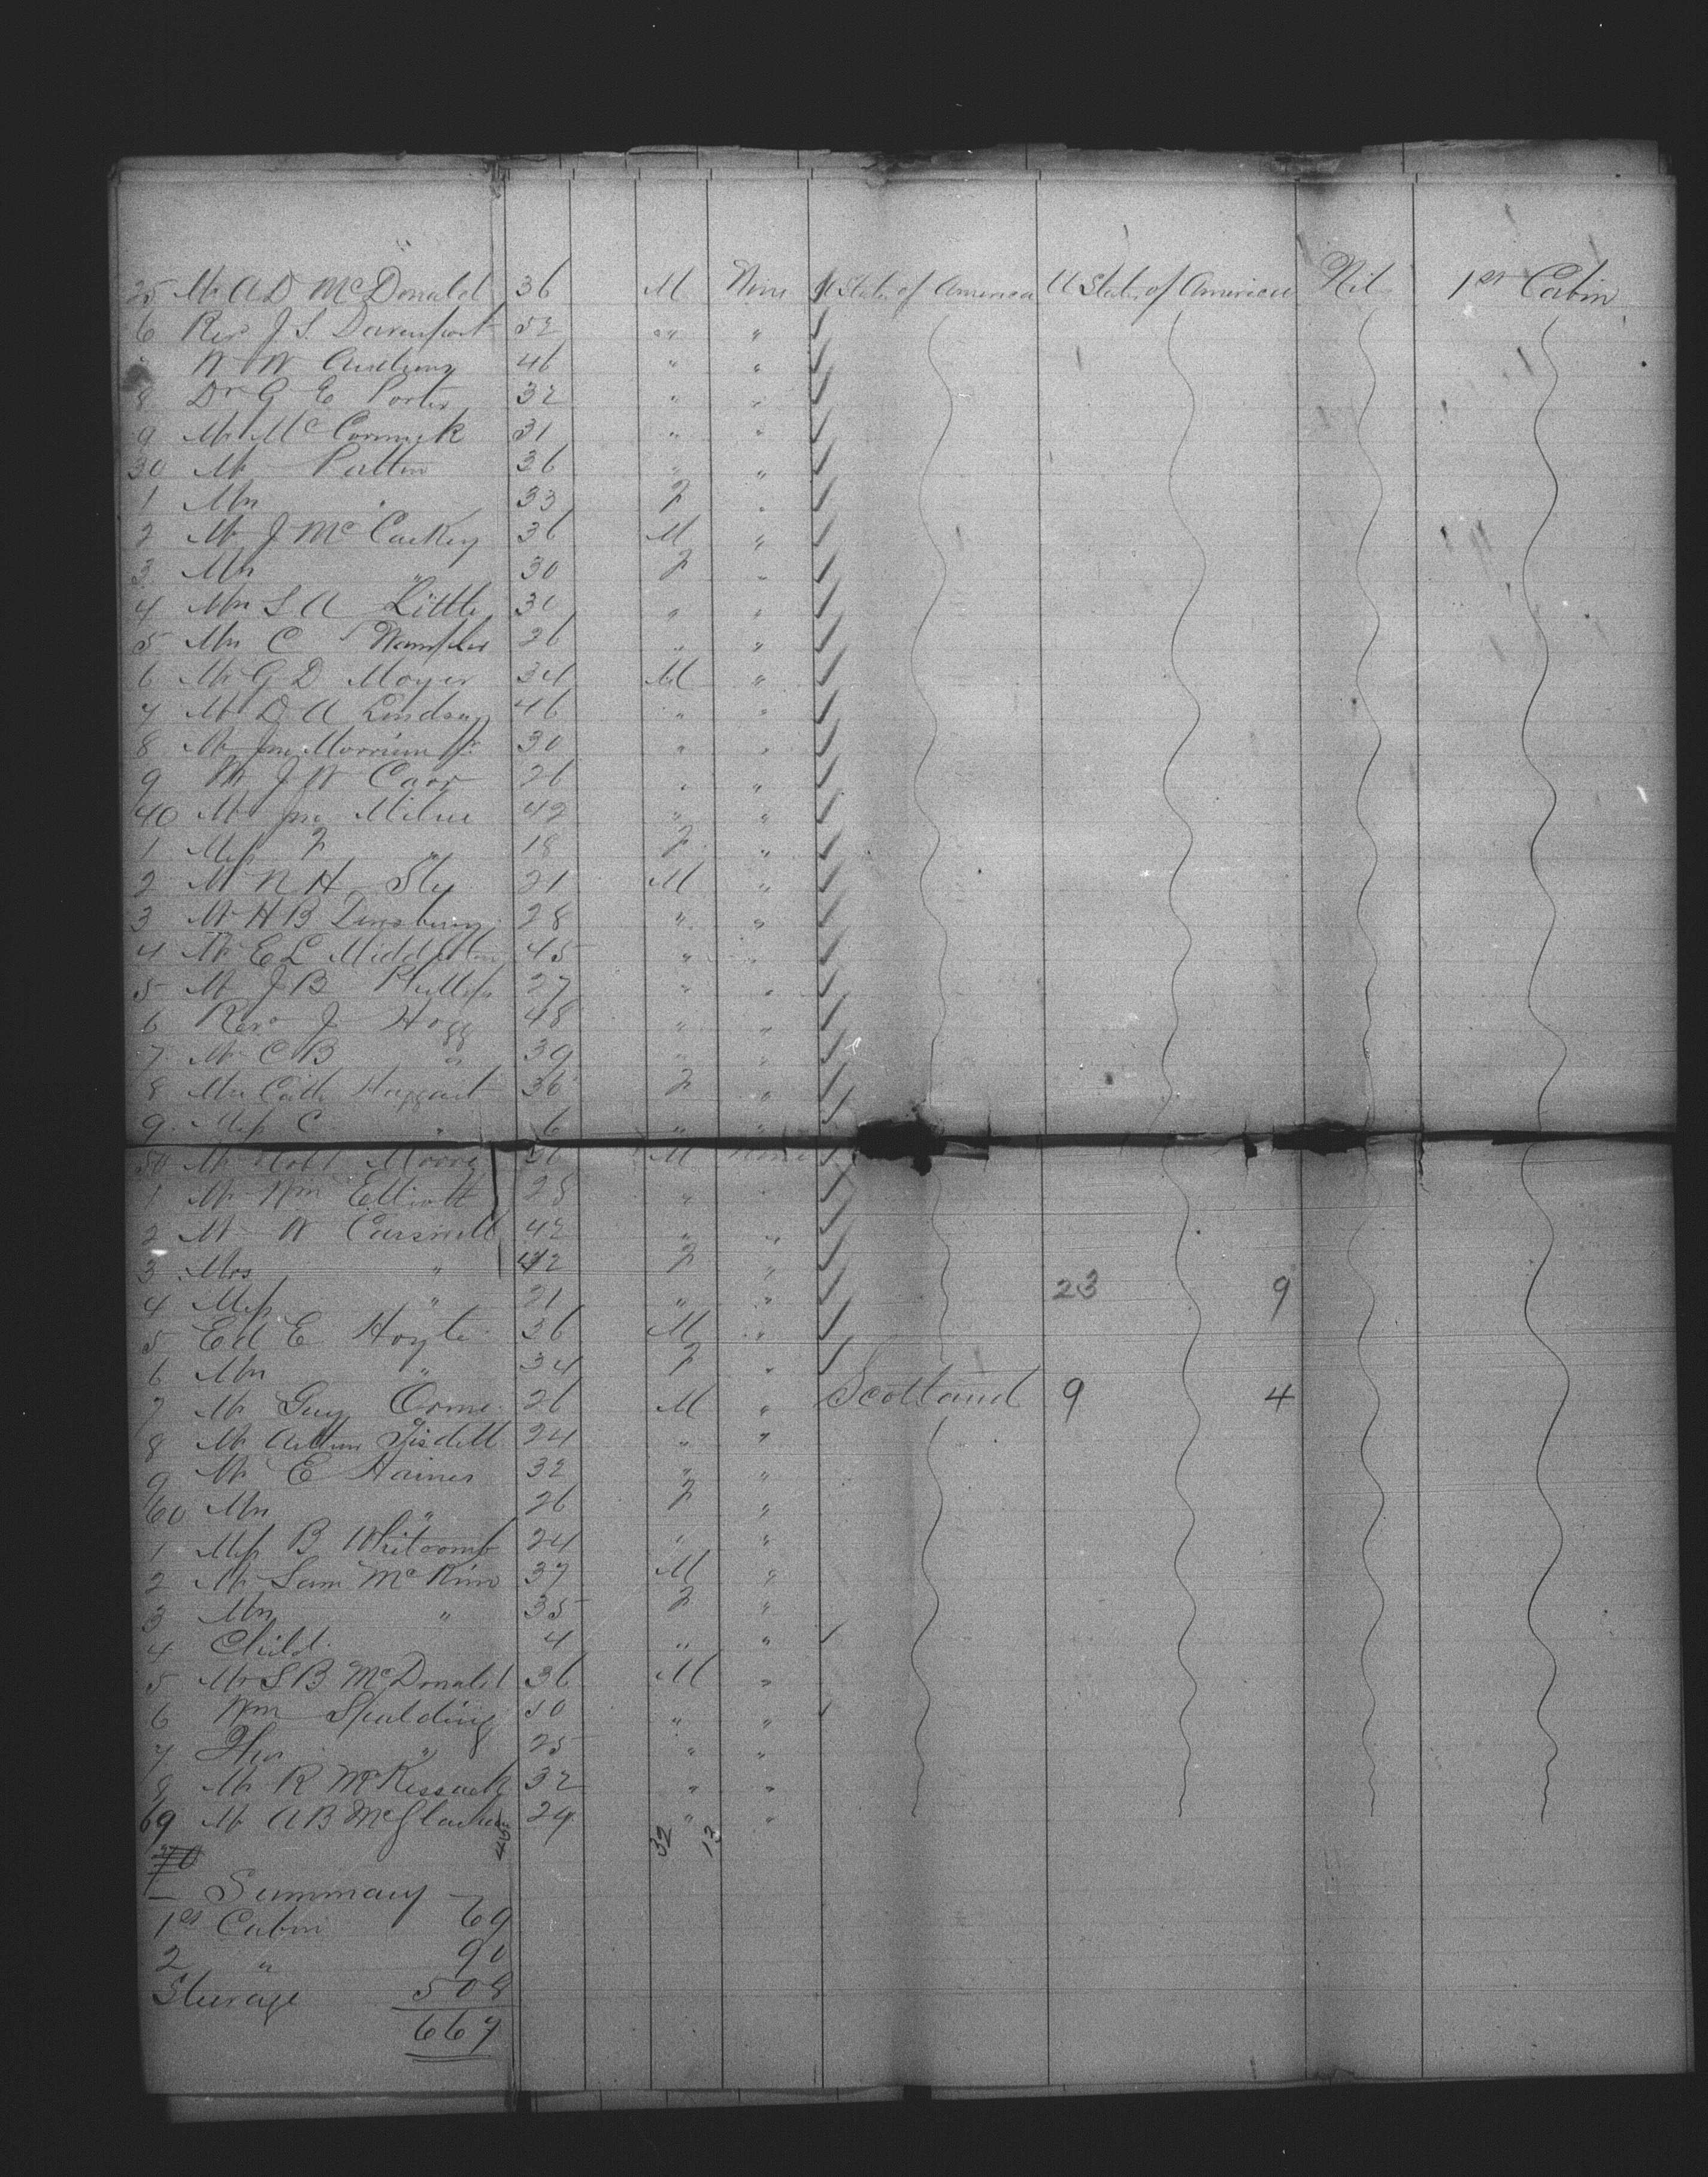 25 Mr A D McDonald 36 M None U States of America U States of America Nil 1st Cabin
6 Rev J. S. Davenport 52 " "
W W 46 " "
8 Dr G E Porter 32 " "
9 Mr McCormick 31 " "
30 Mr Patton 36 " "
1 Mrs " 33 F "
2 Mr J McCaskey 36 M "
3 Mrs " 30 F "
4 Mrs S A Little 30 " "
5 Mrs C Wampler 26 " "
6 Mr G D Moyer 34 M "
7 Mr D A Lindsay 46 " "
8 Mr Jno Morrison Jr 30 " "
9 Mr J W Carr 26 " "
40 Mr Jno Milne 42 " "
1 Miss F " 18 F "
2 Mr N H Sly 21 M "
3 Mr H B 28 " "
4 Mr E L Middleton 45 " "
5 Mr J B Phillips 27 " "
6 Revd J Hogg 48 " "
7 Mr C B " 39 " "
8 Mrs Cath Haggart 36 F "
9 Miss C " 6 " "
50 Mr Robt 36 M None
1 Mr Wm Elliott 28 " "
2 Mr W Carswell 42 " "
3 Mrs " 42 F "
4 Miss " 21 " " 23 9
5 Ed E Hoyte 36 M "
6 Mrs " 34 F "
7 Mr Guy Orme 26 M " Scotland 9 4
8 Mr Arthur Tisdell 24 " "
9 Mr E Haines 32 " "
60 Mrs " 26 F "
1 Miss B Whitcomb 24 " "
2 Mr Sam McKim 37 M "
3 Mrs " 35 F "
4 Child 4 " "
5 Mr S B McDonald 36 M "
6 Wm Spalding 50 " "
7 " 25 " "
8 Mr R McKissack 32 " "
69 Mr A B McGlashan 24 " "
70 45 32 13
— Summary —
1st Cabin 69
2 " 90
Steerage 508
667